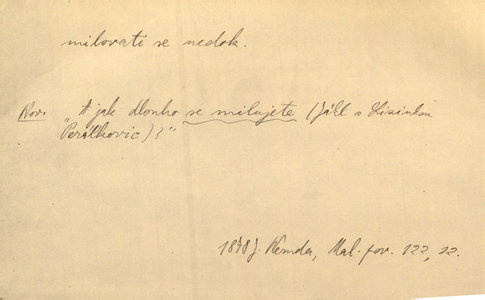 milovati se nedok.
Nov. „A jak dlouho se milujete (Jäll s Lisinkou
Perálkovic)?"
1878 J. Neruda, Mal. pov. 122, 12.